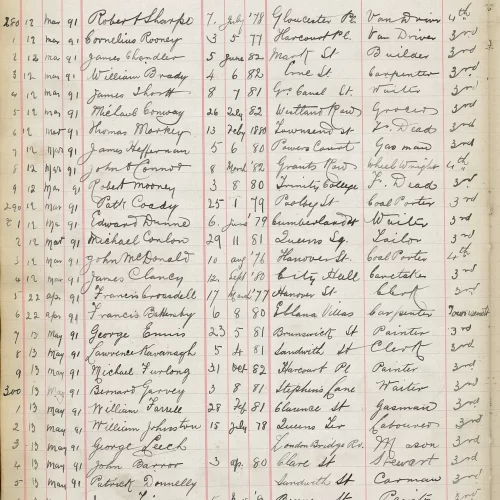 280 12 Mar 91 Robert Sharpe 7 July '78 Gloucester Pl. Van Driver 4th
1 12 Mar 91 Cornelius Rooney 3 5 77 Harcourt Pl. Van Driver 3rd
2 12 Mar 91 James Chandler 5 June 82 Mark St Builder 3rd
3 12 Mar 91 William Brady 4 6 82 Carpenter 3rd
4 12 Mar 91 James Short 8 7 81 Gr. Canal St. Waiter 3rd
5 12 Mar 91 Michael Conway 26 July 82 Row 3rd
6 12 Mar 91 Thomas Markey 13 Feby 1880 Townsend St F. Dead 3rd
7 12 Mar 91 James Heffernan 5 6 80 Powers Court Gas man 3rd
8 12 Mar 91 John O'Connor 8 March '82 Grants Row Wheel Wright 4th
9 12 Mar 91 Robert Mooney 3 8 80 Trinity College F. Dead 3rd
290 12 Mar 91 Patk Coady 25 1 79 Coal Porter 3rd
1 12 Mar 91 Edward Dunne 6 June 79 Cumberland St Waiter 3rd
2 12 Mar 91 Michael Conlon 29 11 81 Queens Sq. Tailor 3rd
12 Mar 91 John McDonald 10 aug '76 Hanover St. Coal Porter 4th
4 12 Mar 91 James Clancy 12 Sept '80 City Hall Caretaker 3rd
5 22 apr 91 Francis 17 March '77 Hanover St. Clerk 3rd
6 22 apr 91 Francis Battersby 6 8 80 Eblana Villas Carpenter
7 13 May 91 George Ennis 23 5 81 Brunswick St Painter 3rd
8 13 May 91 Lawrence Kavanagh 5 4 81 Sandwith St Clerk 3rd
9 13 May 91 Michael Furlong 31 Oct 82 Harcourt Pl Painter 3rd
300 13 May 91 Bernard Garvey 3 8 81 Stephens Lane Waiter 3rd
1 13 May 91 William Farrell 28 Feb 81 Clarence St Gasman 3rd
2 13 May 91 William Johnston 15 July 78 Queens Labourer 3rd
3 13 May 91 George Leech London Bridge Rd. Mason 3rd
4 13 May 91 John Barror 3 ap. 80 Clare St Stewart 3rd
5 13 May 91 Patrick Donnelly Sandwith St Carman 3rd